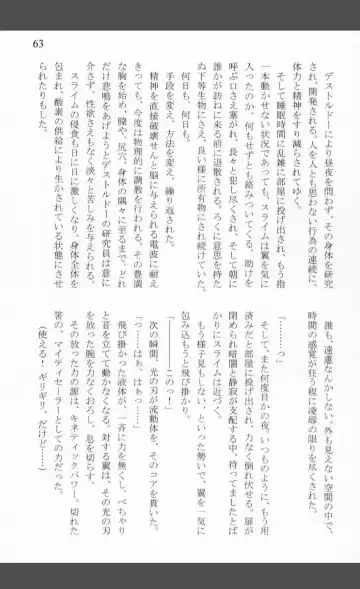 63
デストルドーにより昼夜を問わず、その身体を研究
され、開発される。人を人とも思わない行為の連続に、
体力と精神をすり減らされてゆく。
そして睡眠時間に乱雑に部屋に投げ出され、もう指
一本動かせない状況であっても、スライムは翼を気に
入ったのか、何もせずとも絡みついてくる。助けを
呼ぶ口さえ塞がれ、長々と犯し尽くされ、そして朝に
誰かが訪ねに来る前に退散される。ろくに意思を持た
ぬ下等生物にさえ、良い様に所有物にされ続けていた。
何日も、何日も。
手段を変え、方法を変え、繰り返された。
精神を直接破壊せんと脳に与えられる電波に耐え
きっても、今度は物理的に調教を行われる。その豊満
な胸を始め、膣や、尻穴、身体の隅々に至るまで、どれ
だけ悲鳴をあげようとデストルドーの研究員は意に
介さず、性欲さえもなく淡々と苦しみを与えられる。
スライムの侵食も日に日に激しくなり、身体全体を
包まれ、酸素の供給により生かされている状態にさせ
られたりもした。
誰も、遠慮なんかしない。外も見えない空間の中で、
時間の感覚が狂う程に凌辱の限りを尽くされた。
「………っ」
そして、また何度目かの夜。いつものように、もう用
済みだと部屋に投げ出され、力なく倒れ伏せる。扉が
閉められ暗闇と静寂が支配する中、待ってましたとば
かりにスライムは近づく。
もう様子見もしない、といった勢いで、翼を一気に
包み込もうと飛び掛かり。
「————このっ！」
次の瞬間、光の刃が流動体を、そのコアを貫いた。
飛び掛かった液体が、一斉に力を無くし、べちゃり
と音を立てて動かなくなる。対する翼は、その光の刃
を放った腕を力なくおろし、息を切らす。
「っ……はぁ、はぁっ……」
その放った力の源は、キネティックパワー。切れた
筈の、マイティセーラーとしての力だった。
（使える！ ギリギリ、だけど……）